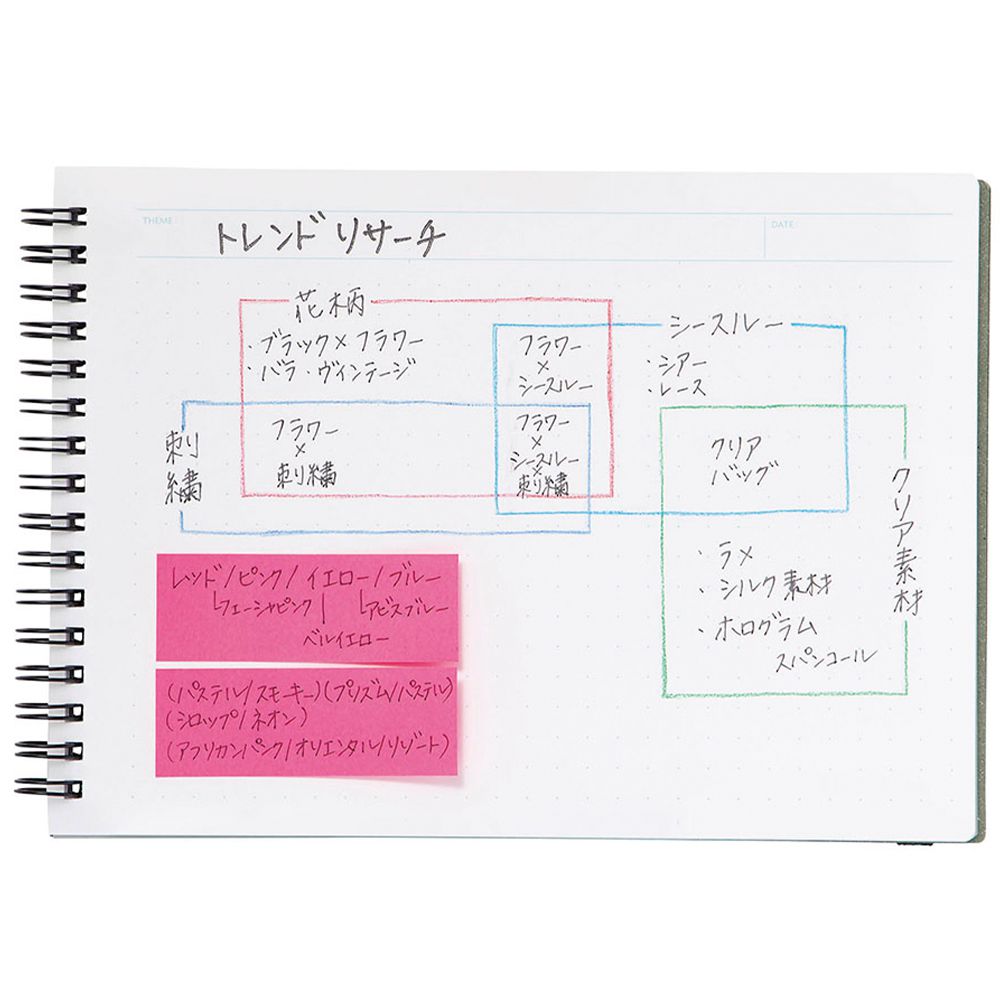 THEME:
トレンドリサーチ
DATE:
花柄
・ブラック×フラワー
・バラ・ヴィンテージ
フラワー
×
シースルー
シースルー
・シアー
・レース
刺繍
フラワー
×
刺繍
フラワー
×
シースルー
×
刺繍
クリア
バッグ
クリア素材
・ラメ
・シルク素材
・ホログラム
スパンコール
レッド/ピンク/イエロー/ブルー
フューシャピンク
アビスブルー
ペルイエロー
(パステル/スモーキー)(プリズム/パステル)
(シロップ/ネオン)
(アフリカンパンク/オリエンタル/リゾート)